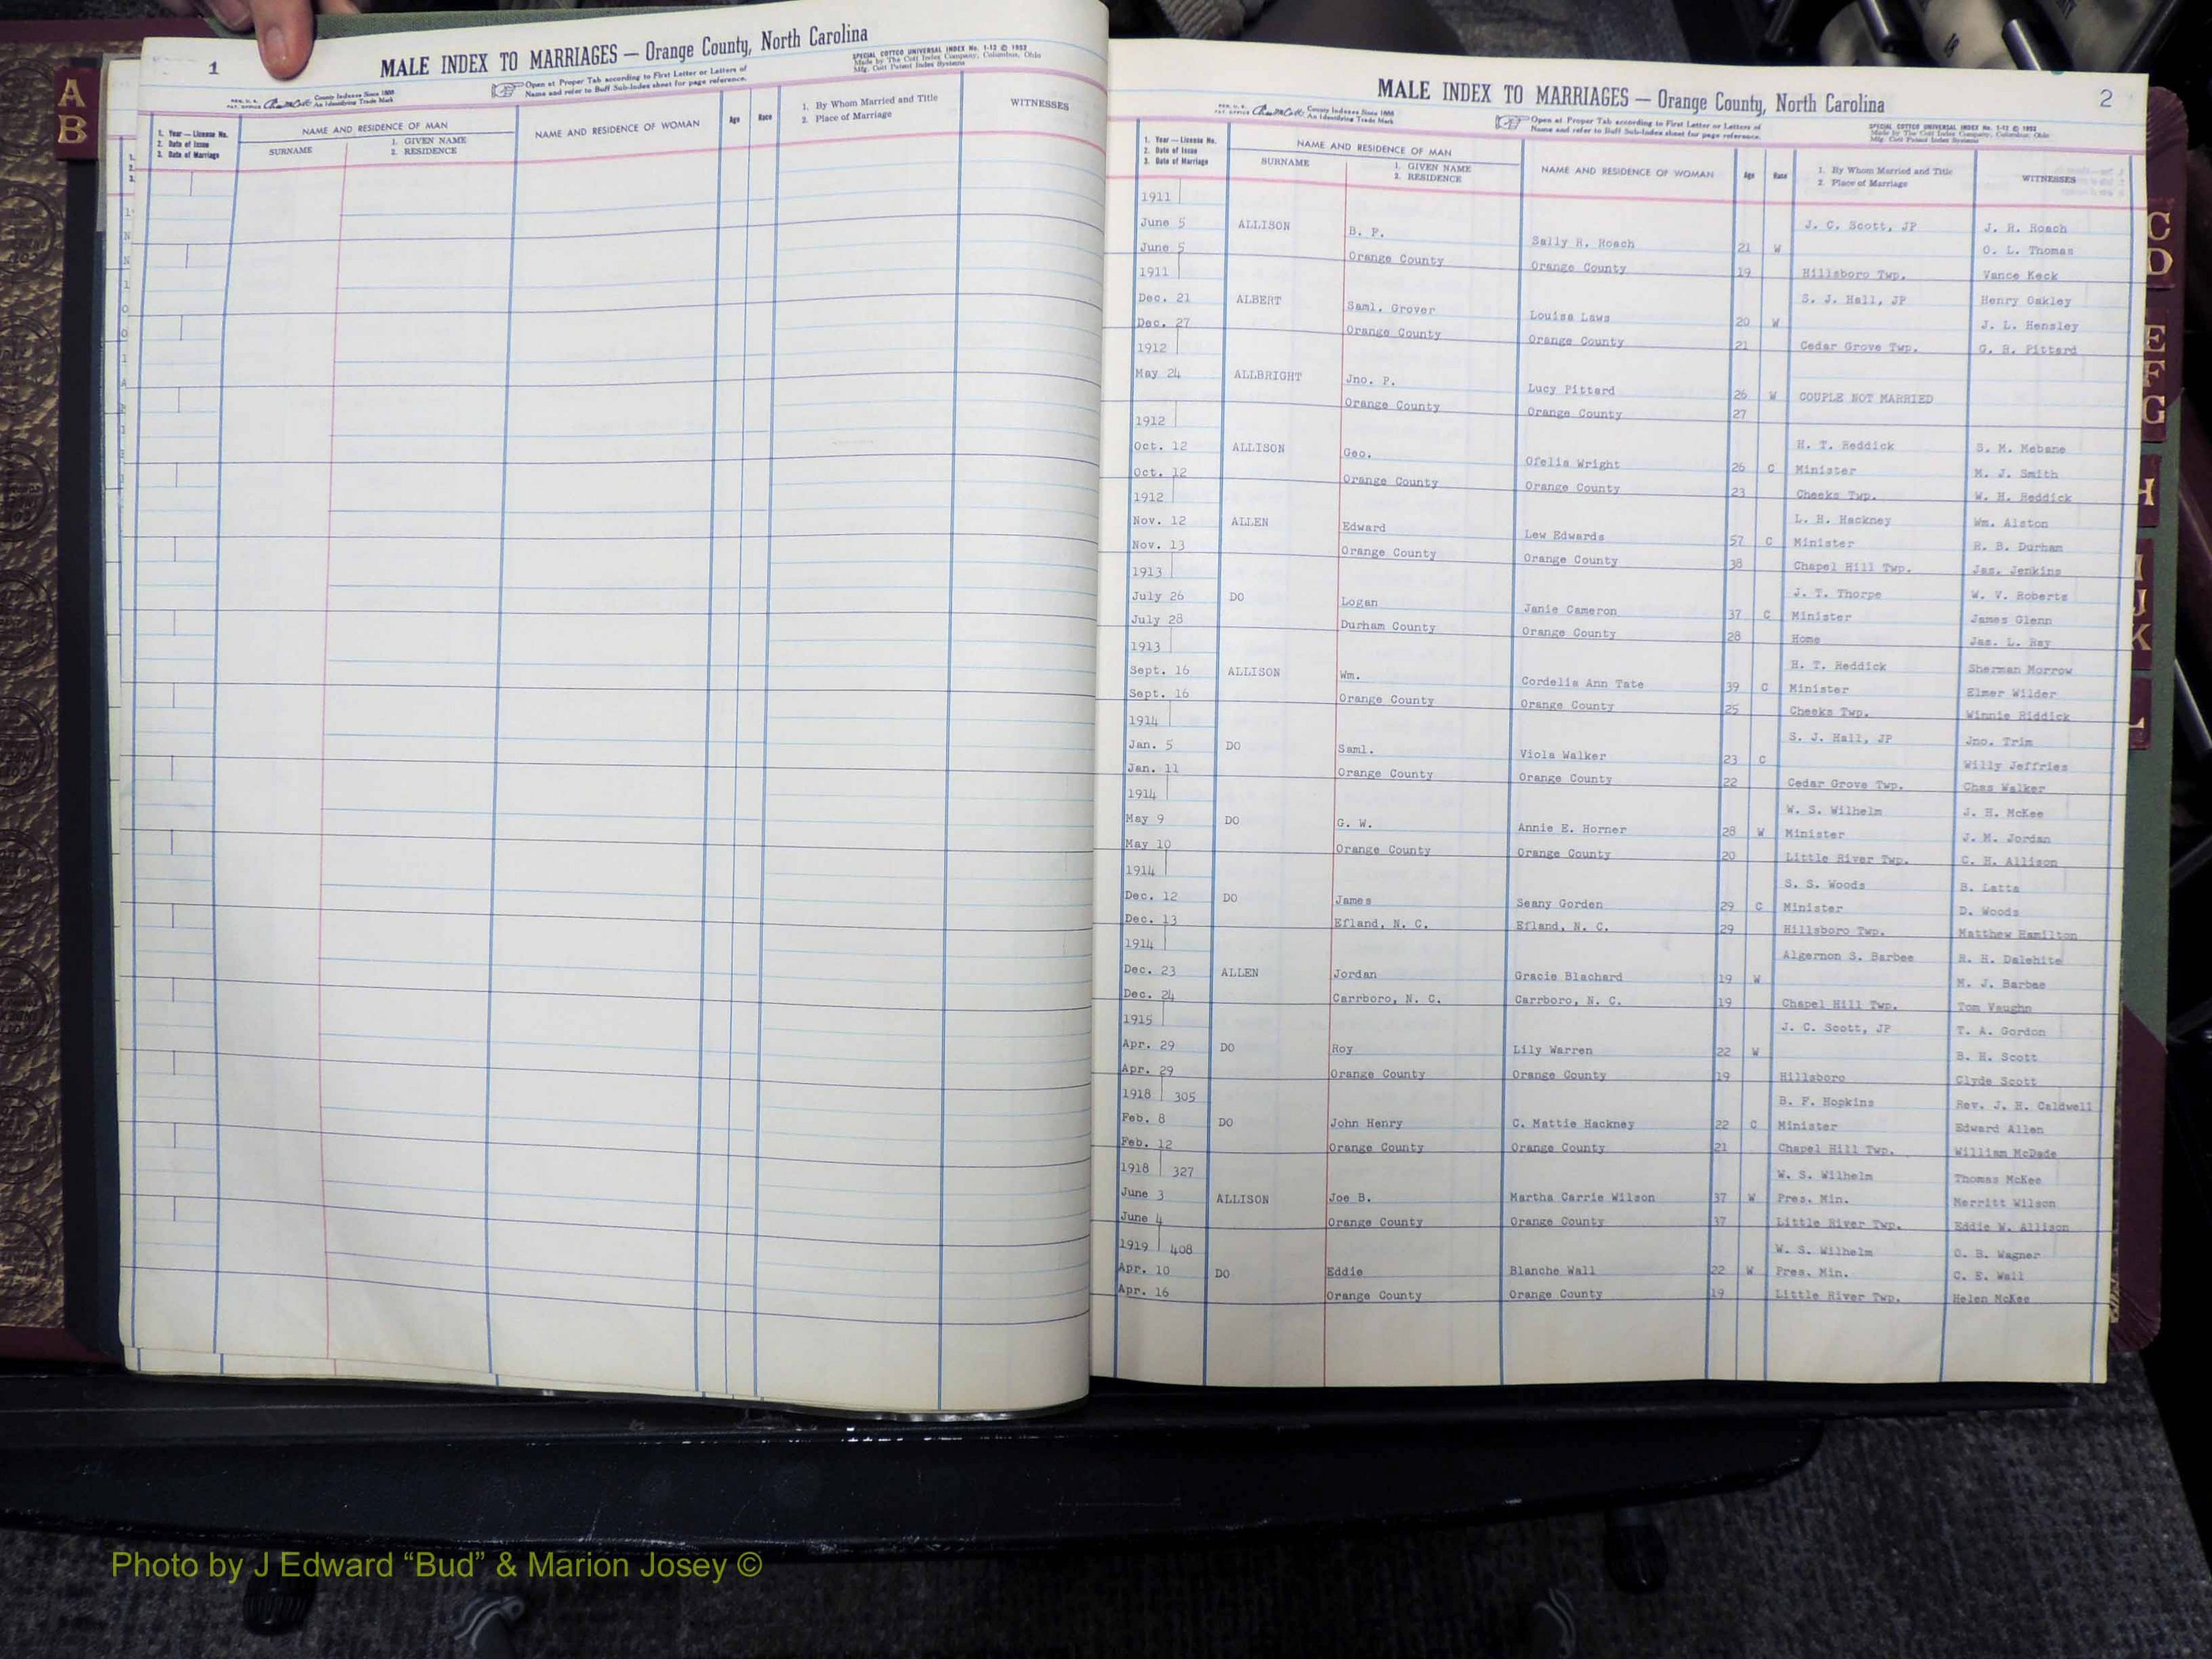 1
MALE INDEX TO MARRIAGES — Orange County, North Carolina
SPECIAL COTTCO UNIVERSAL INDEX No. 1-12 © 1953
Made by The Cott Index Company, Columbus, Ohio
Mfg. Cott Patent Index Systems
County Indexes Since 1888
An Identifying Trade Mark
Open at Proper Tab according to First Letter or Letters of
Name and refer to Buff Sub-Index sheet for page reference.
1. Year — License No.
2. Date of Issue
3. Date of Marriage
NAME AND RESIDENCE OF MAN
SURNAME
1. GIVEN NAME
2. RESIDENCE
NAME AND RESIDENCE OF WOMAN
Age
Race
1. By Whom Married and Title
2. Place of Marriage
WITNESSES
2
MALE INDEX TO MARRIAGES — Orange County, North Carolina
County Indexes Since 1888
An Identifying Trade Mark
Open at Proper Tab according to First Letter or Letters of
Name and refer to Buff Sub-Index sheet for page reference.
SPECIAL COTTCO UNIVERSAL INDEX No. 1-12 © 1953
Made by The Cott Index Company, Columbus, Ohio
Mfg. Cott Patent Index Systems
1. Year — License No.
2. Date of Issue
3. Date of Marriage
NAME AND RESIDENCE OF MAN
SURNAME
1. GIVEN NAME
2. RESIDENCE
NAME AND RESIDENCE OF WOMAN
Age
Race
1. By Whom Married and Title
2. Place of Marriage
WITNESSES
1911
June 5 ALLISON B. F. Sally R. Roach 21 W J. C. Scott, JP J. R. Roach
June 5 O. L. Thomas
Orange County Orange County 19 Hillsboro Twp. Vance Keck
1911
Dec. 21 ALBERT Saml. Grover Louisa Laws 20 W S. J. Hall, JP Henry Oakley
Dec. 27 J. L. Hensley
Orange County Orange County 21 Cedar Grove Twp. G. R. Pittard
1912
May 24 ALLBRIGHT Jno. P. Lucy Pittard 26 W COUPLE NOT MARRIED
Orange County Orange County 27
1912
Oct. 12 ALLISON Geo. Ofelia Wright 26 C H. T. Reddick S. M. Mebane
Oct. 12 Minister M. J. Smith
Orange County Orange County 23 Cheeks Twp. W. H. Reddick
1912
Nov. 12 ALLEN Edward Lew Edwards 57 C L. H. Hackney Wm. Alston
Nov. 13 Minister R. B. Durham
Orange County Orange County 38 Chapel Hill Twp. Jas. Jenkins
1913
July 26 DO Logan Janie Cameron 37 C J. T. Thorpe W. V. Roberts
July 28 Minister James Glenn
Durham County Orange County 28 Home Jas. L. Ray
1913
Sept. 16 ALLISON Wm. Cordelia Ann Tate 39 C H. T. Reddick Sherman Morrow
Sept. 16 Minister Elmer Wilder
Orange County Orange County 25 Cheeks Twp. Winnie Riddick
1914
Jan. 5 DO Saml. Viola Walker 23 C S. J. Hall, JP Jno. Trim
Jan. 11 Willy Jeffries
Orange County Orange County 22 Cedar Grove Twp. Chas Walker
1914
May 9 DO G. W. Annie E. Horner 28 W W. S. Wilhelm J. H. McKee
May 10 Minister J. M. Jordan
Orange County Orange County 20 Little River Twp. C. H. Allison
1914
Dec. 12 DO James Seany Gorden 29 C S. S. Woods B. Latta
Dec. 13 Minister D. Woods
Efland, N. C. Efland, N. C. 29 Hillsboro Twp. Matthew Hamilton
1914
Dec. 23 ALLEN Jordan Gracie Blachard 19 W Algernon S. Barbee R. H. Dalehite
Dec. 24 M. J. Barbee
Carrboro, N. C. Carrboro, N. C. 19 Chapel Hill Twp. Tom Vaughn
1915
Apr. 29 DO Roy Lily Warren 22 W J. C. Scott, JP T. A. Gordon
Apr. 29 B. H. Scott
Orange County Orange County 19 Hillsboro Clyde Scott
1918 305
Feb. 8 DO John Henry C. Mattie Hackney 22 C B. F. Hopkins Rev. J. H. Caldwell
Feb. 12 Minister Edward Allen
Orange County Orange County 21 Chapel Hill Twp. William McDade
1918 327
June 3 ALLISON Joe B. Martha Carrie Wilson 37 W W. S. Wilhelm Thomas McKee
June 4 Pres. Min. Merritt Wilson
Orange County Orange County 37 Little River Twp. Eddie W. Allison
1919 408
Apr. 10 DO Eddie Blanche Wall 22 W W. S. Wilhelm O. B. Wagner
Apr. 16 Pres. Min. C. E. Wall
Orange County Orange County 19 Little River Twp. Helen McKee
A
B
C
D
E
F
G
H
I
J
K
L
Photo by J Edward “Bud” & Marion Josey ©